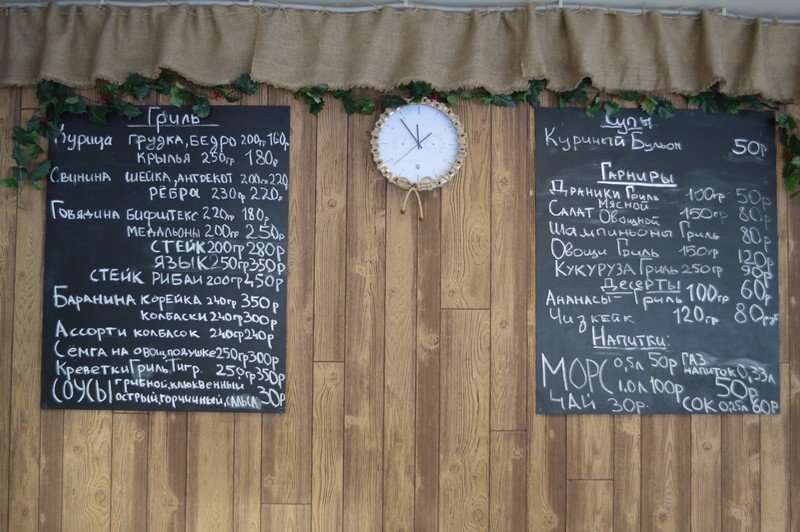 Гриль
Курица грудка, бедро 200гр 160р
крылья 250гр 180р
Свинина шейка, антрекот 200гр 220
рёбра 230гр 220р
Говядина Бифштекс 220гр 180р
медальоны 200гр 250р
стейк 200гр 280р
язык 250гр 350р
стейк рибай 200гр 450р
Баранина корейка 240гр 350р
колбаски 240гр 300р
Ассорти колбасок 240гр 240р
Сёмга на овощ.подушке 250гр 300р
Креветки Гриль, Тигр. 250гр 350р
Соусы грибной, клюквенный 30р
острый, горчичный,
Супы
Куриный Бульон 50р
Гарниры
Драники Гриль 100гр 50р
Мясной 80р
Салат Овощной 150гр 80р
Шампиньоны Гриль 80р
Овощи Гриль 150гр 120р
Кукуруза Гриль 250гр 90р
Десерты
Ананасы-гриль 100гр 60р
Чизкейк 120гр 80руб
Напитки:
Морс 0,5л 50р газ напиток 0,33л
1.0л 100р 50р
Чай 30р. Сок 0,25л 60р